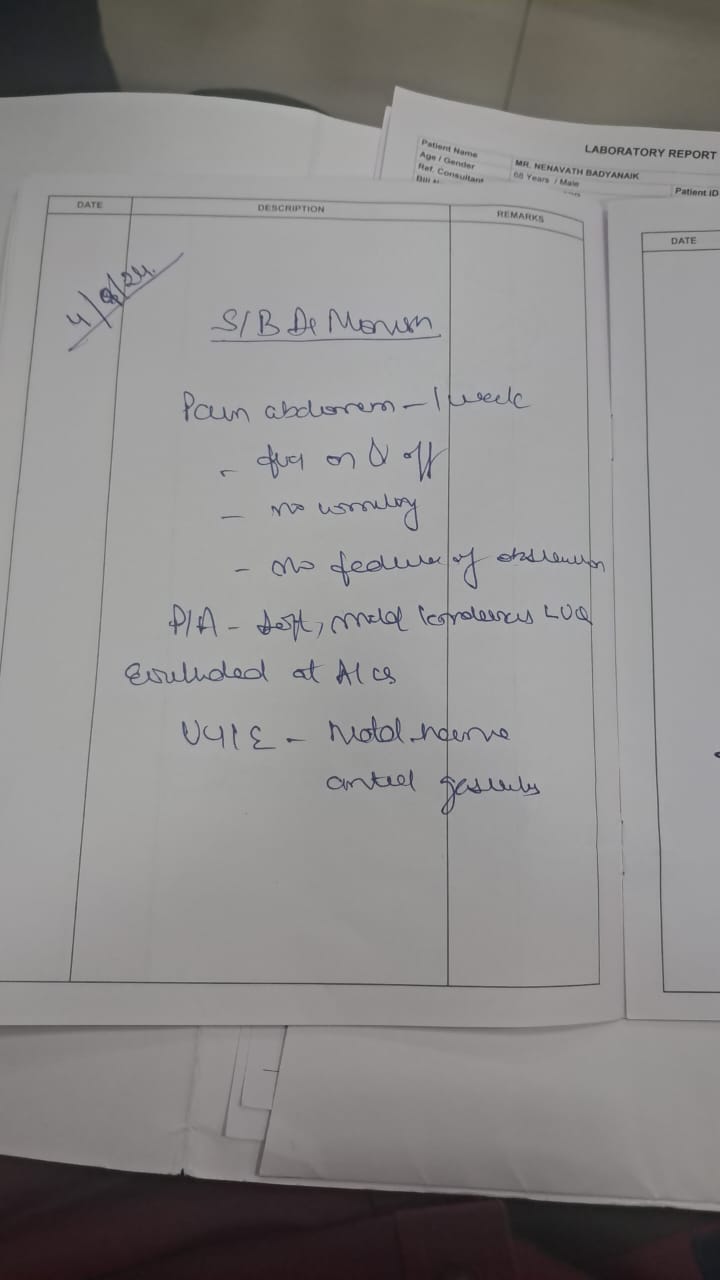 LABORATORY REPORT
Patient Name MR. NENAVATH BADYANAIK
Age / Gender 68 Years / Male
Ref. Consultant
Patient ID
DATE DESCRIPTION REMARKS
DATE
4/8/24
S/B Dr
Pain abdomen - 1 week
- on & off
- no vomiting
- no feature of obstruction
P/A - soft, mild tenderness LUQ
Evaluated at
UGIE -
antral gastritis